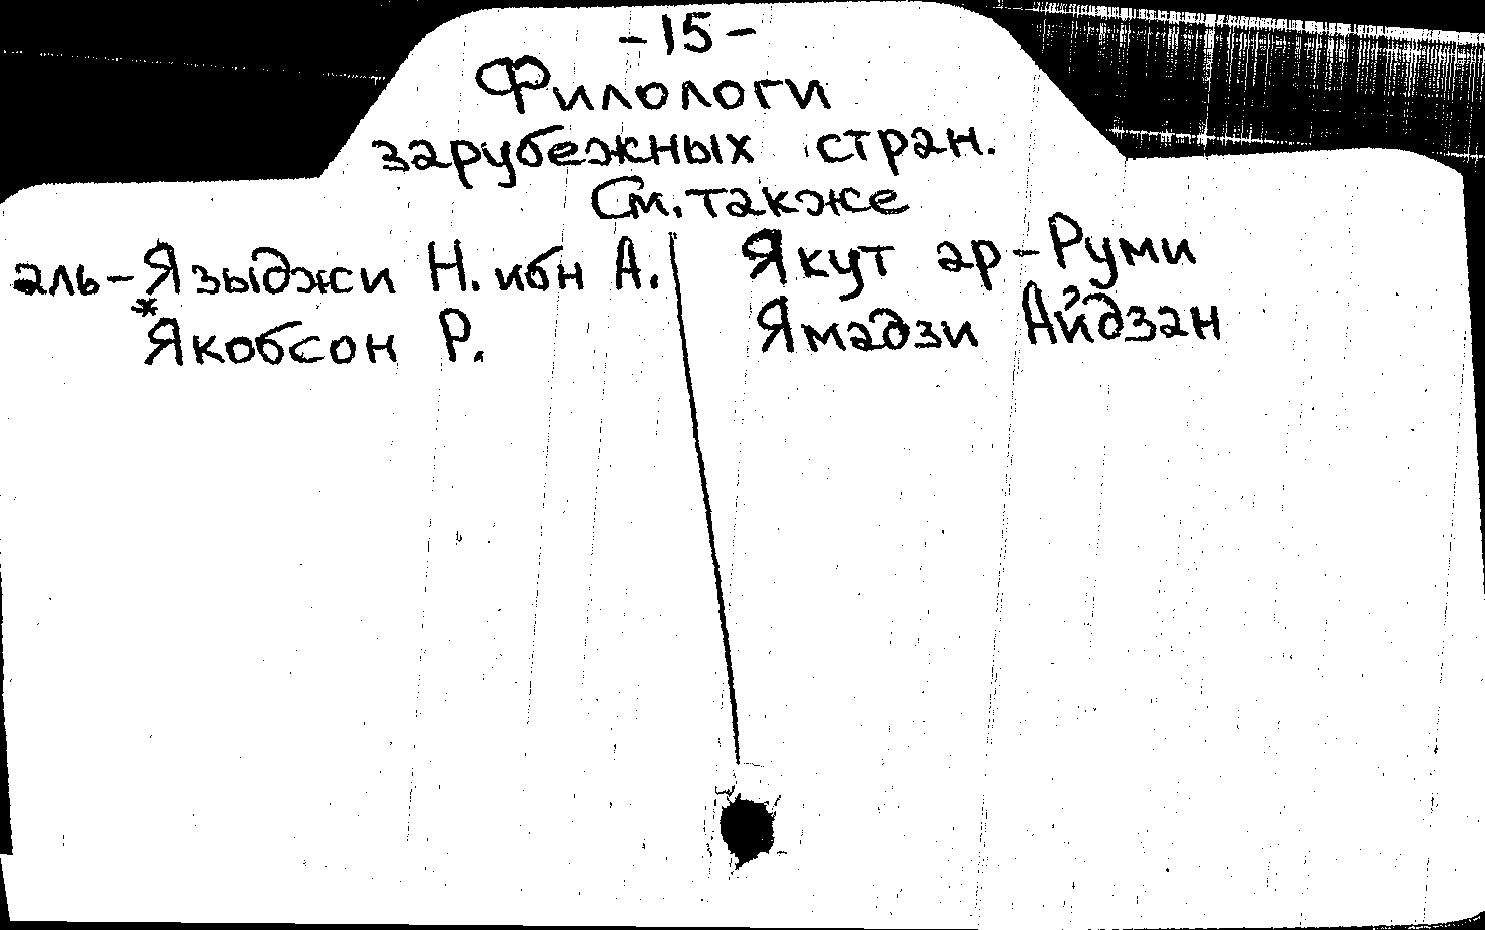 -15-
Филологи
зарубежных стран.
См. также
аль-Языджи Н. ибн А.
*Якобсон Р.
Якут ар-Руми
Ямадзи Айдзан